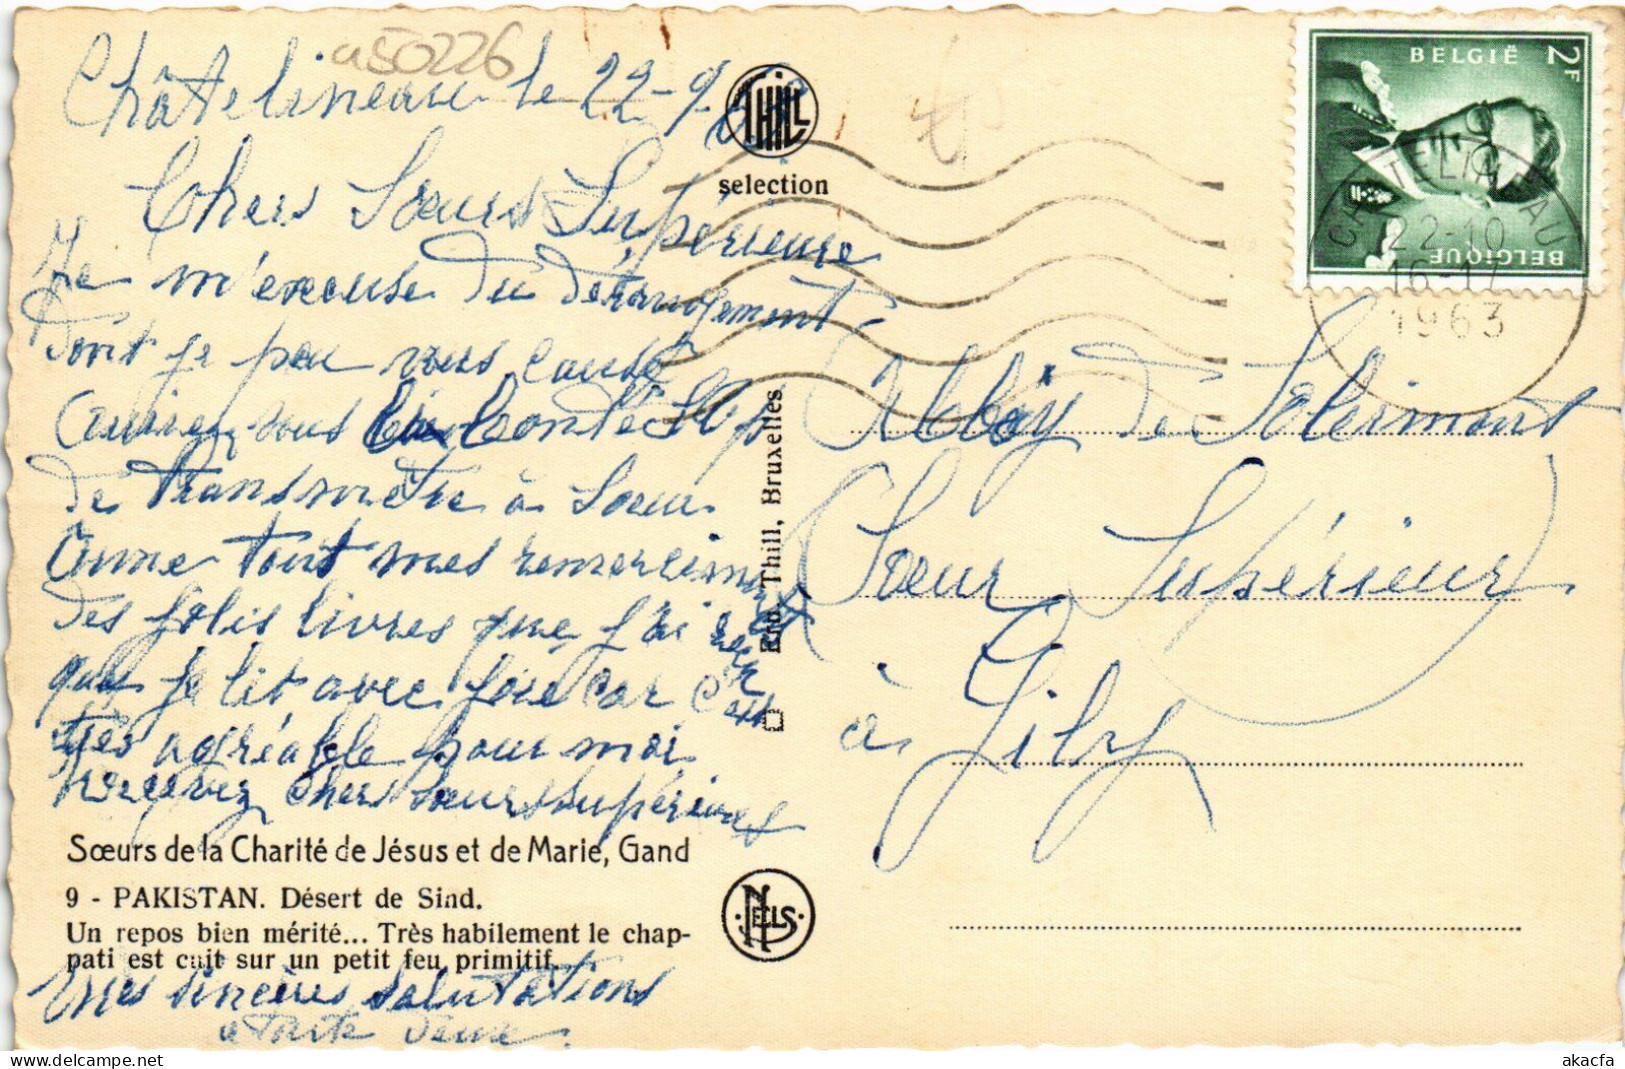 a50226
Châtelineau le 22-9-63
THILL
selection
Chers Sœurs Supérieure
Je m'excuse du dérangement
Dont je peu vous causé
vous bonté S.V.p
De transmetre à Sœur
Anne tout mes remerciment
Des jolis livres que j'ai reçu
que je lit avec joie car c'est
très agréable pour moi
Recevez Chers Sœurs Supérieures
Sœurs de la Charité de Jésus et de Marie, Gand
9 - PAKISTAN. Désert de Sind.
Un repos bien mérité... Très habilement le chap-
pati est cuit sur un petit feu primitif.
Mes sincères salutations
Ern. Thill, Bruxelles
NELS
BELGIË 2F
BELGIQUE
CHATELINEAU
22-10
16-17
1963
Abbaÿ de Soleimont
Sœur Supérieur
à Gily
akacfa